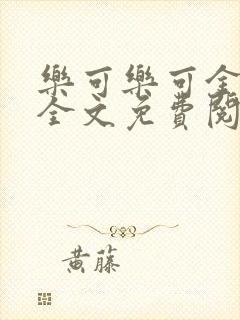 樂可樂可全
全文免費閱
黃藤